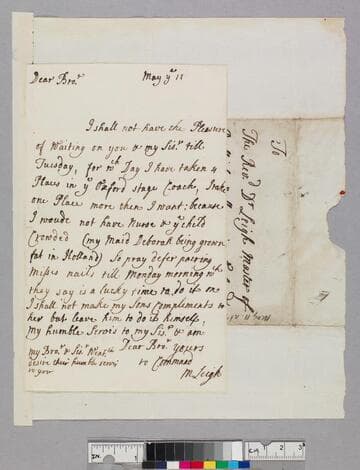 Dear Bro.r May ye 11
I shall not have the Pleasure
of waiting on you & my Sis.r till
Tuesday, for wch Day I have taken 4
Places in ye Oxford stage Coach,
one Place more then I want: because
I woude not have Nurse & ye child
Crowded (my Maid Deborah being grown
fat in Holland) So pray defer pairing
Misses nails till Monday morning wch
they say is a lucky time to do it in
I shall not make my Sons Complements to
her but leave him to do it himself,
my humble Servis to my Sis.r & am
Dear Bro.r yours
to Command
M Leigh
my Bro.r & Sis.r
desire their humble servis
to you
To
The Revd Dr Leigh Master of